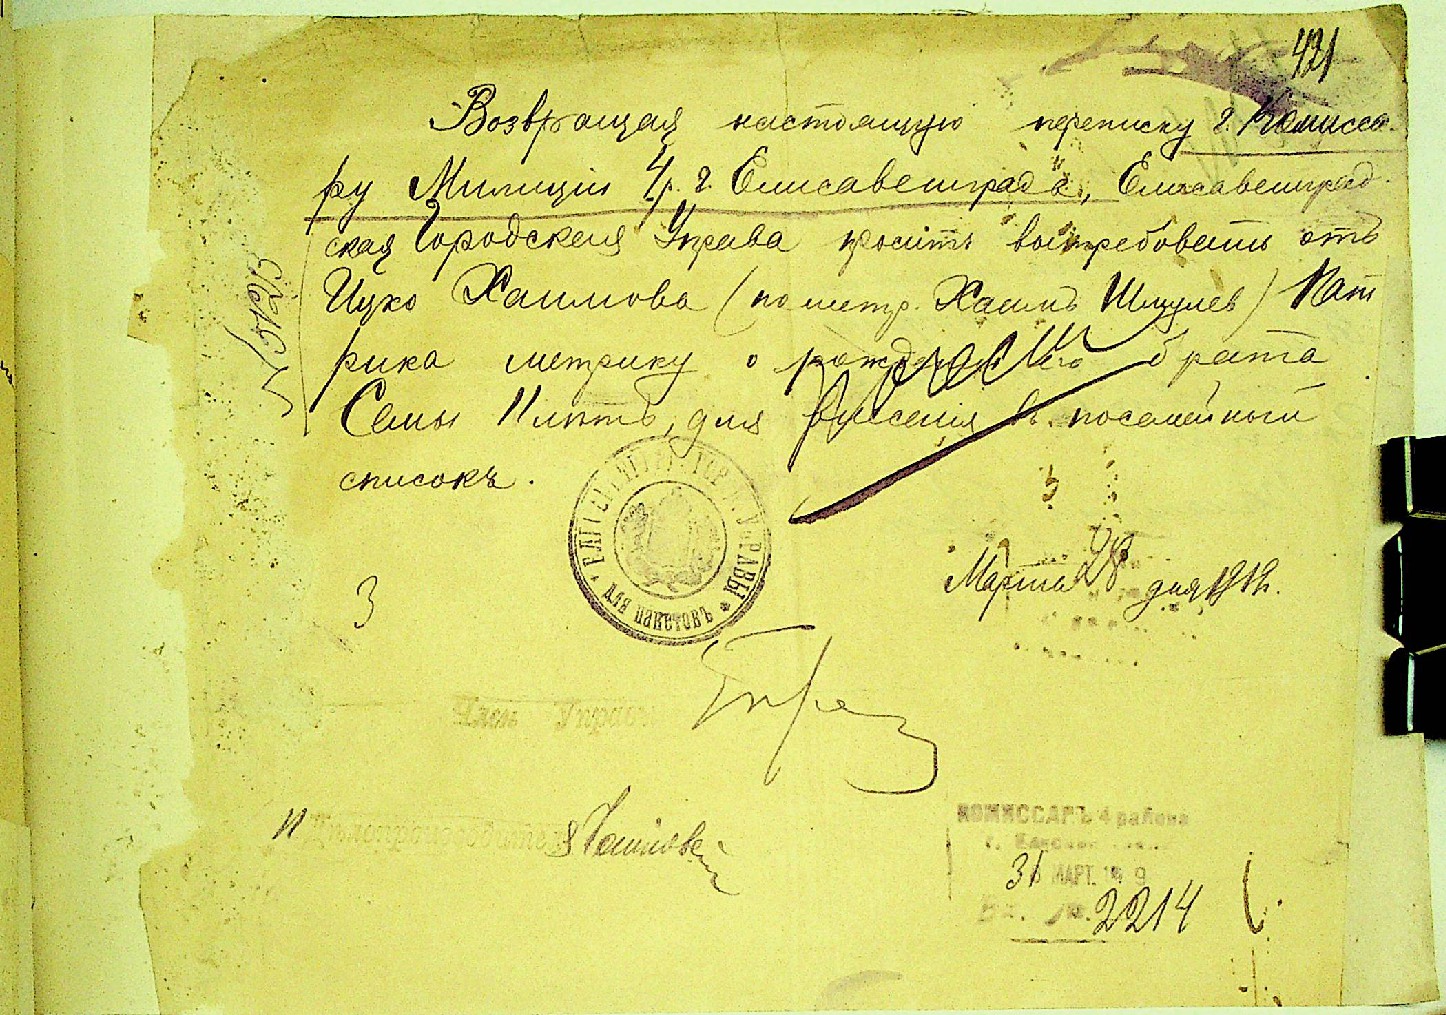 421
Возвращая настоящую переписку г. Комисса-
ру Милиціи 4 р. г. Елисаветграда, Елисаветград-
ская Городская Управа проситъ востребовать отъ
Ицко Хаимова (по метр. Хаимъ Шмулев) Кат
рика метрику о рожденіи его брата
Семы 11 лѣтъ, для внесенія в посемейный
списокъ.
УПРАВЫ
для пакетовъ
3
Марта 28 дня
Член Управы
Дѣлопроизводитель
КОМИССАРЪ 4 района
31 МАРТ. 19 9
Вх. № 2214